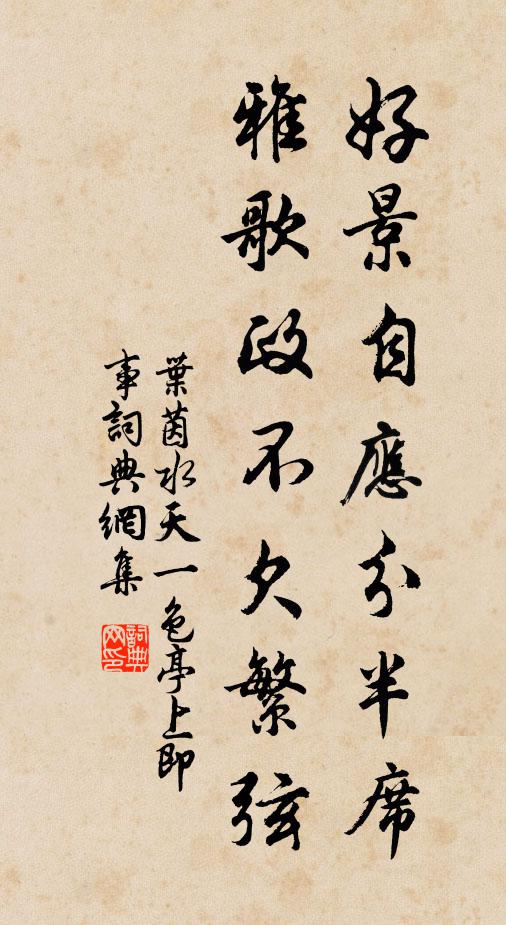 好景自應分半席
雅歌政不欠繁弦
葉茵水天一色亭上即
事詞典網集
詞典
网印